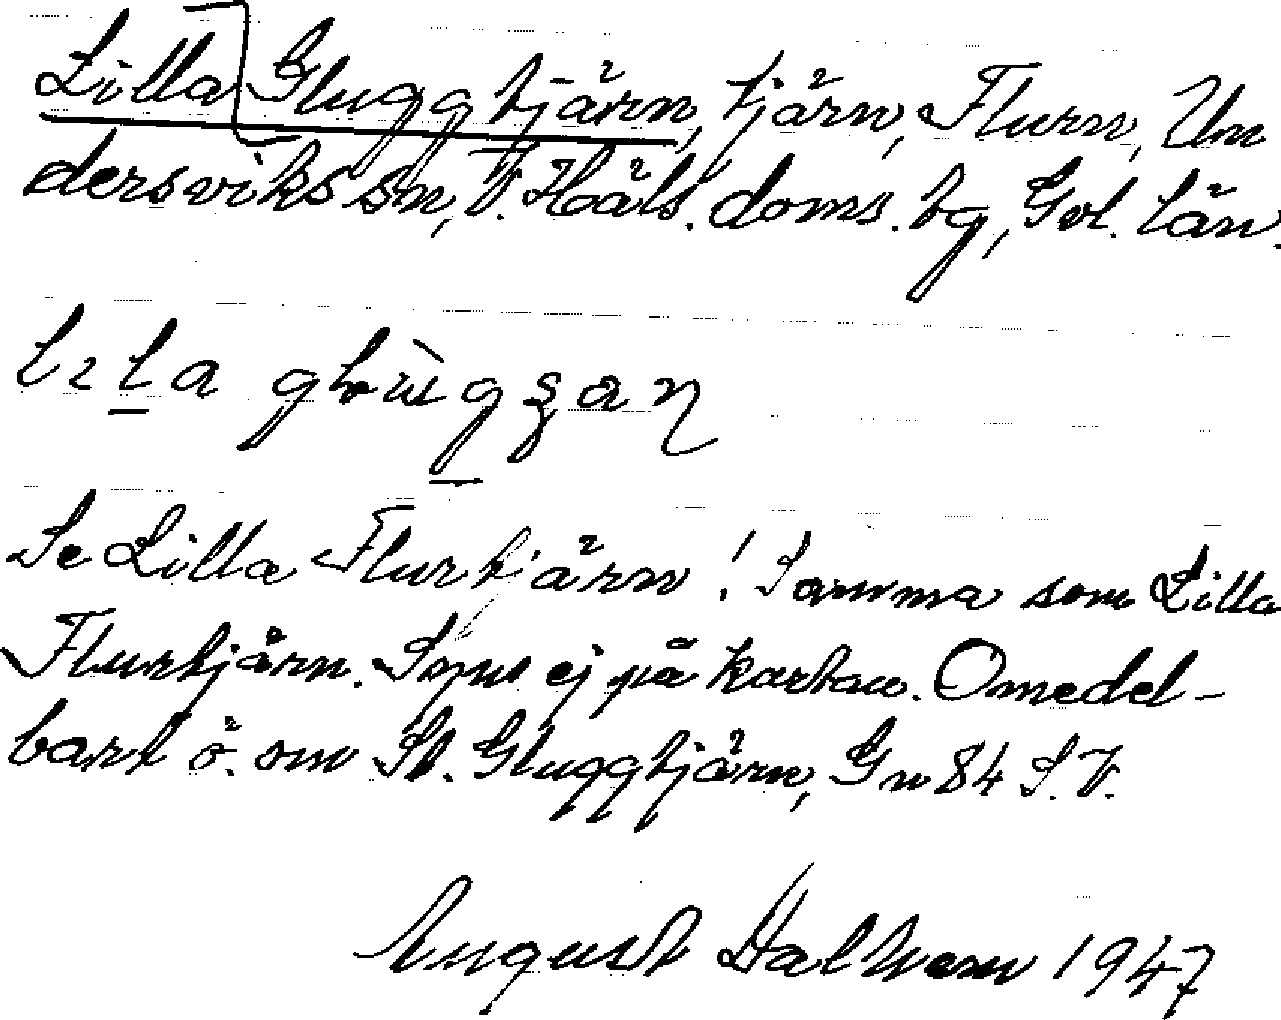 Lilla] Gluggtjärn, tjärn, Flurn, Un
dersviks sn, V. Häls. doms. tg, Gvl. län.
Se Lilla Flurtjärn! Samma som Lilla
Flurtjärn. Synes ej på kartan. Omedel-
bart ö. om St. Gluggtjärn, Gn 84 S.V.
August Dalhem 1947